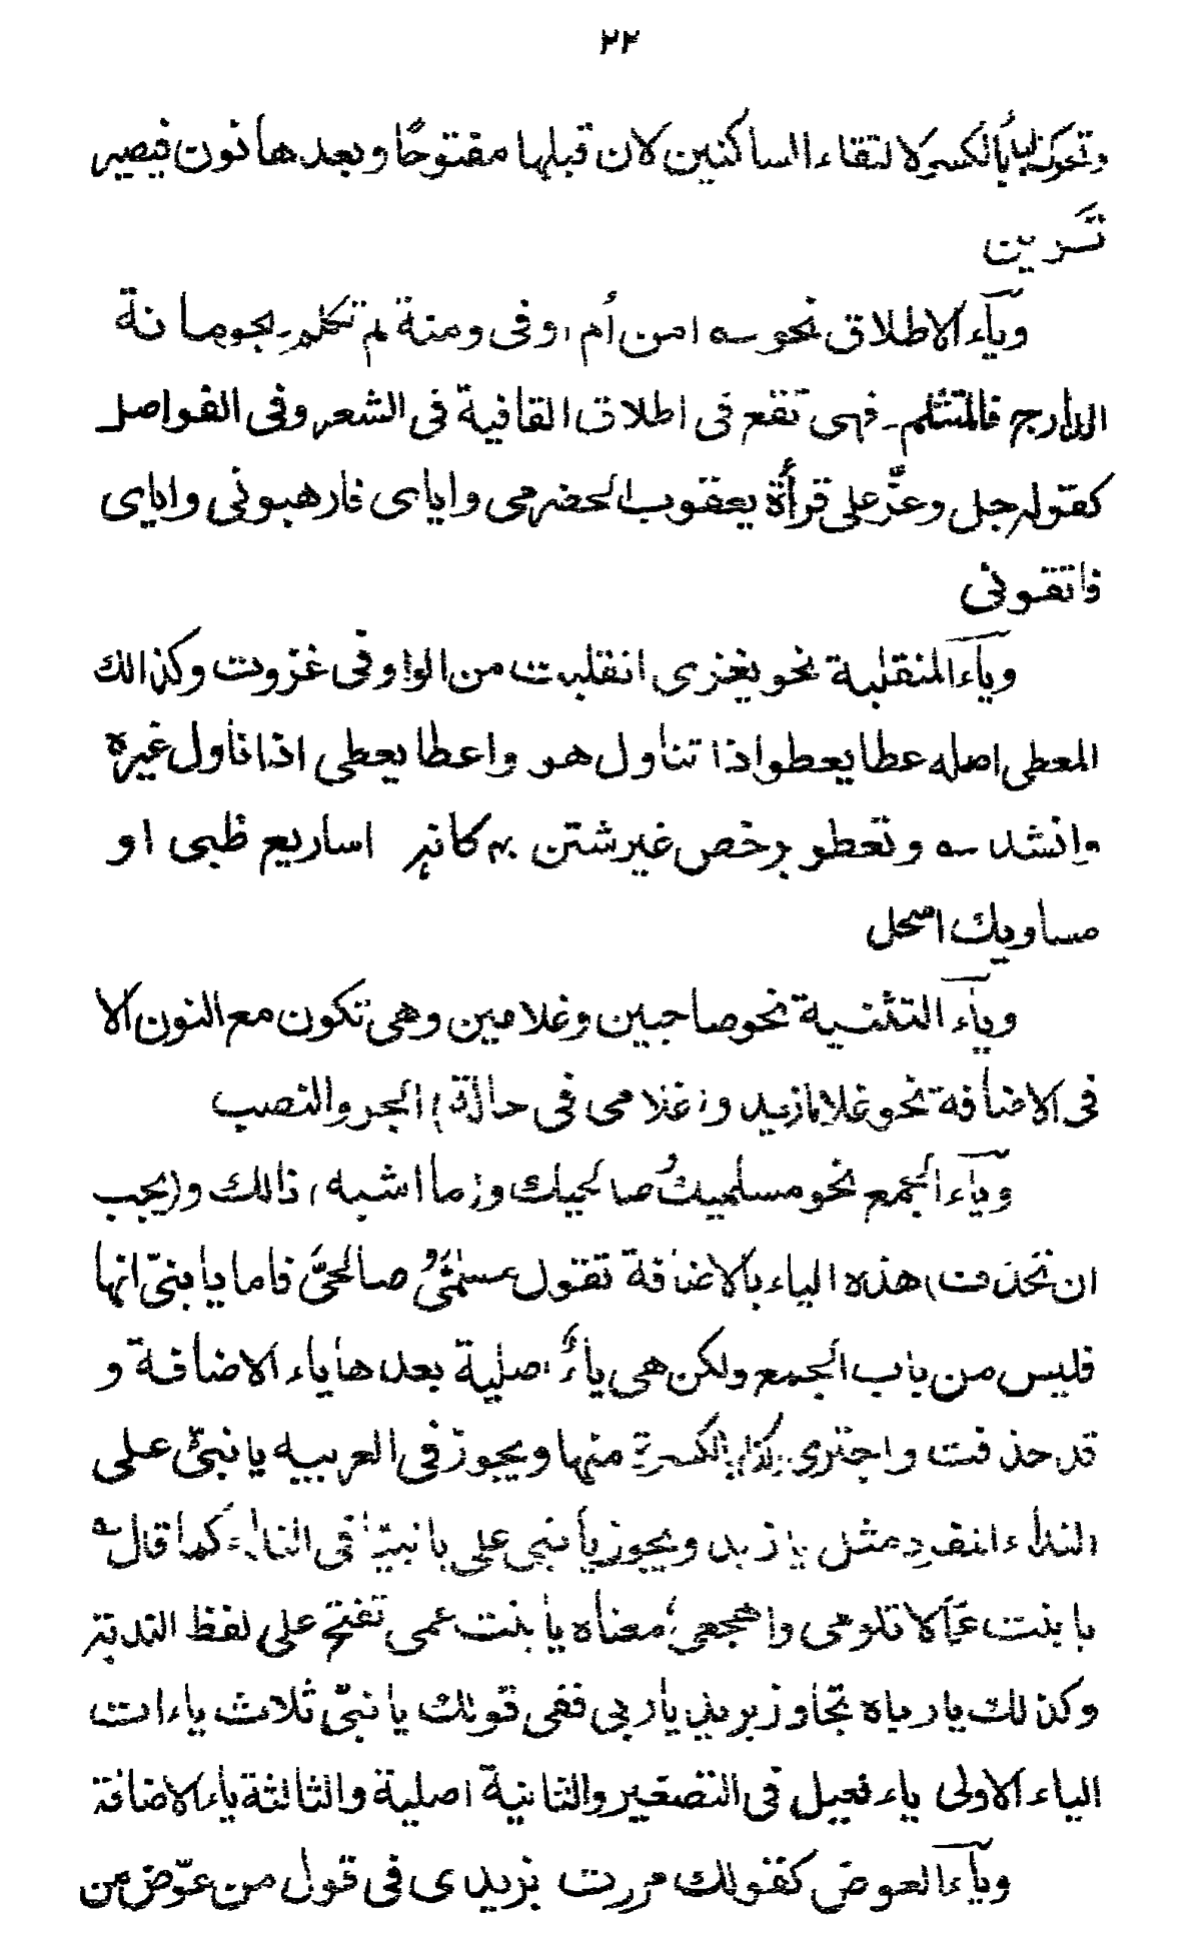 ٢٢
وتحرك الياء بالكسرة لالتقاء الساكنين لان قبلها مفتوحًا وبعدها نون فيصير
تَرين
وياَء الاطلاق نحو سه امن أم اوفى ومنة لم تكلم بحومانة
الدارج فالمتثلم۔ فهى تقع فى اطلاق القافية فى الشعر وفى الفواصل
كقوله جل وعزّ على قرأة يعقوب الحضرمى واياى فارهبونى واياى
فاتقونى
وياَء المنقلبة نحو يغزى انقلبت من الواو فى غزوت وكذالك
المعطى اصله عطا يعطوا اذا تناول هو واعطا يعطى اذا ناول غيره
وانشد سه وتعطو برخص غير شتن كانه اساريع ظبى او
مساويك اسحل
وياَء التثنية نحو صاحبين وغلامين وهى تكون مع النون الا
فى الاضافة نحو غلاما زيد و(غلامى فى حالة) الجر والنصب
وياَء الجمع نحو مسلميك صالحيك و(ما اشبه) ذالك و(يجب
ان تحذف) هذه الياء بالاضافة تقول مسلمىَّ صالحىَّ فاما يا بنىّ انها
فليس من باب الجمع ولكن هى ياءٌ اصلية بعدها ياء الاضافة و
قد حذفت واجتزى بالكسرة منها ويجوز فى العربيه يا نبىّ على
النداء المنفرد مثل يا زيد ويجوز يا نبى على يا نبيّا فى النداء كما قال سه
يا بنت عمّا لا تلومى واهجعى؛ معناه يا بنت عمى تفتح على لفظ الندبة
وكذلك يا رباه تجاوز يريد يا ربى ففى قولك يا نبىّ ثلاث ياءات
الياء الاولى ياء فعيل فى التصغير والثانية اصلية والثالثة ياء الاضافة
وياَء العوض كقولك مررت بزيدى فى قول من عوّض من